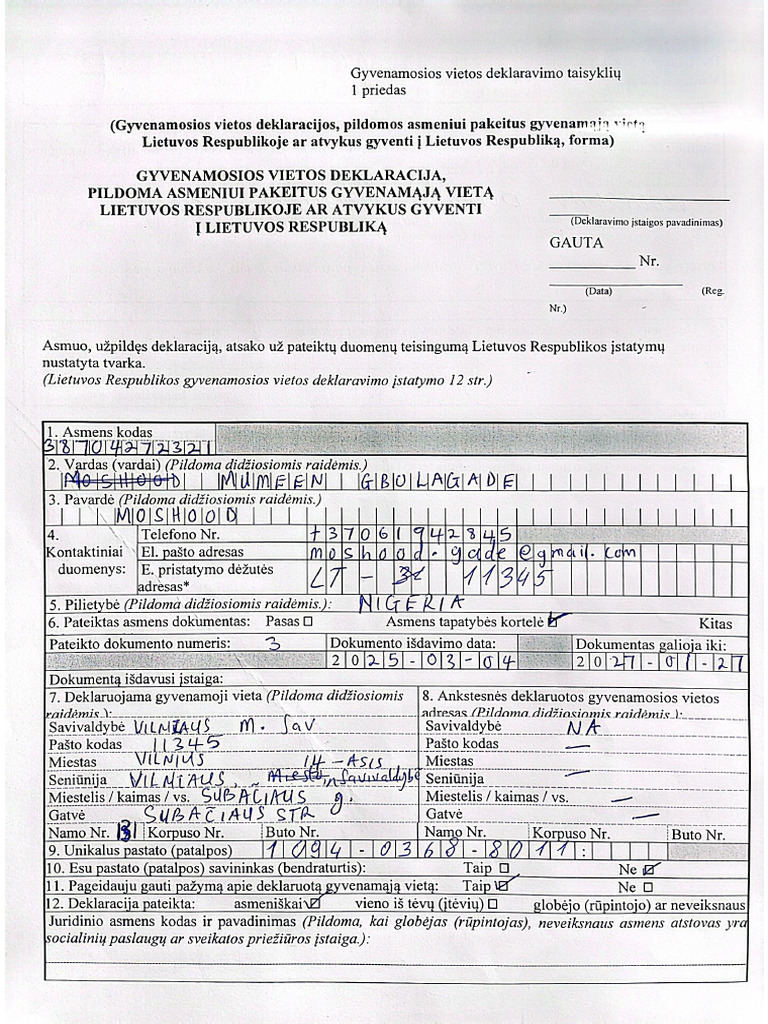 Gyvenamosios vietos deklaravimo taisyklių
1 priedas
(Gyvenamosios vietos deklaracijos, pildomos asmeniui pakeitus gyvenamąją vietą
Lietuvos Respublikoje ar atvykus gyventi į Lietuvos Respubliką, forma)
GYVENAMOSIOS VIETOS DEKLARACIJA,
PILDOMA ASMENIUI PAKEITUS GYVENAMĄJĄ VIETĄ
LIETUVOS RESPUBLIKOJE AR ATVYKUS GYVENTI
Į LIETUVOS RESPUBLIKĄ
(Deklaravimo įstaigos pavadinimas)
GAUTA
Nr.
(Data) (Reg.
Nr.)
Asmuo, užpildęs deklaraciją, atsako už pateiktų duomenų teisingumą Lietuvos Respublikos įstatymų
nustatyta tvarka.
(Lietuvos Respublikos gyvenamosios vietos deklaravimo įstatymo 12 str.)
1. Asmens kodas
38704272321
2. Vardas (vardai) (Pildoma didžiosiomis raidėmis.)
MOSHOOD MUMEEN GBOLAGADE
3. Pavardė (Pildoma didžiosiomis raidėmis.)
MOSHOOD
4. Kontaktiniai duomenys:
Telefono Nr. +37061942845
El. pašto adresas moshood.gade@gmail.com
E. pristatymo dėžutės adresas* LT - 11345
5. Pilietybė (Pildoma didžiosiomis raidėmis.): NIGERIA
6. Pateiktas asmens dokumentas: Pasas ☐ Asmens tapatybės kortelė ☑ Kitas
Pateikto dokumento numeris: 3 Dokumento išdavimo data: 2025-03-04 Dokumentas galioja iki: 2027-01-27
Dokumentą išdavusi įstaiga:
7. Deklaruojama gyvenamoji vieta (Pildoma didžiosiomis raidėmis.):
Savivaldybė VILNIAUS m. sav
Pašto kodas 11345
Miestas VILNIUS 14-ASIS
Seniūnija VILNIAUS, Miesto, Savivaldybė
Miestelis / kaimas / vs. SUBAČIAUS g.
Gatvė SUBAČIAUS STR
Namo Nr. Korpuso Nr. Buto Nr.
8. Ankstesnės deklaruotos gyvenamosios vietos adresas (Pildoma didžiosiomis raidėmis.):
Savivaldybė NA
Pašto kodas —
Miestas
Seniūnija —
Miestelis / kaimas / vs. —
Gatvė —
Namo Nr. Korpuso Nr. Buto Nr.
9. Unikalus pastato (patalpos) 1094-0368-8011:
10. Esu pastato (patalpos) savininkas (bendraturtis): Taip ☐ Ne ☑
11. Pageidauju gauti pažymą apie deklaruotą gyvenamąją vietą: Taip ☑ Ne ☐
12. Deklaracija pateikta: asmeniškai ☑ vieno iš tėvų (įtėvių) ☐ globėjo (rūpintojo) ar neveiksnaus
Juridinio asmens kodas ir pavadinimas (Pildoma, kai globėjas (rūpintojas), neveiksnaus asmens atstovas yra
socialinių paslaugų ar sveikatos priežiūros įstaiga.):